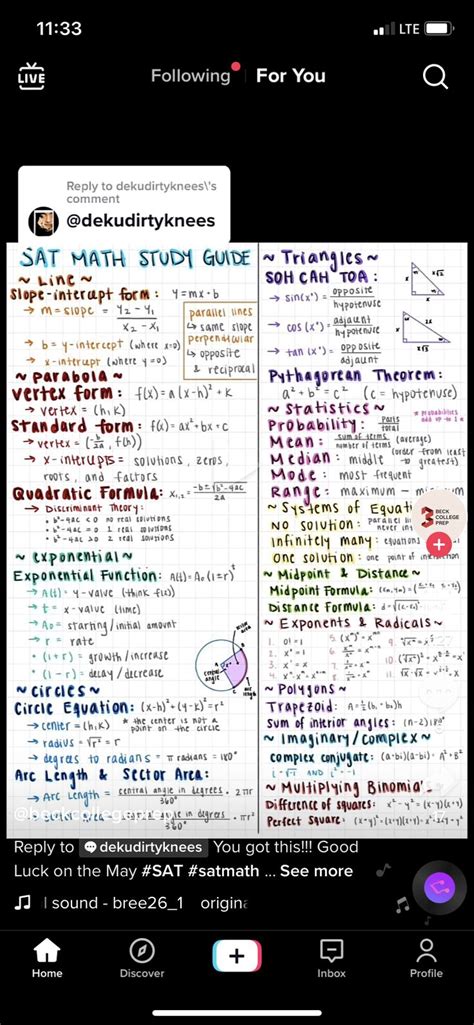 11:33
LTE
LIVE
Following
For You
Reply to dekudirtyknees\'s
comment
@dekudirtyknees
SAT MATH STUDY GUIDE
~ Line ~
Slope-intercept form: y=mx+b
→ m = slope = y₂ - y₁
x₂ - x₁
parallel lines
↳ same slope
perpendicular
↳ opposite
& reciprocal
→ b = y-intercept (where x=0)
→ x-intercept (where y=0)
~ Parabola ~
Vertex form: f(x)=a(x-h)²+k
→ vertex = (h,k)
Standard form: f(x)=ax²+bx+c
→ vertex = 
→ x-intercepts = solutions, zeros,
roots, and factors
Quadratic Formula:
→ Discriminant Theory:
• b²-4ac < 0 no real solutions
• b²-4ac = 0 1 real solutions
• b²-4ac > 0 2 real solutions
~ Exponential ~
Exponential Function: A(t)=A₀(1±r)ᵗ
→ A(t) = y-value (think f(x))
→ t = x-value (time)
→ A₀ = starting/initial amount
→ r = rate
• (1+r) = growth/increase
• (1-r) = decay/decrease
central
angle
arc
length
~ Circles ~
Circle Equation: (x-h)²+(y-k)²=r²
→ center = (h,k)
* the center is not a
point on the circle
→ radius = √r² = r
→ degrees to radians = π radians = 180°
Arc Length & Sector Area:
→ Arc Length = central angle in degrees · 2πr
360°
@beckcollegeprep
~ Triangles ~
SOH CAH TOA:
→ sin(x°) = opposite
hypotenuse
→ cos(x°) = adjacent
hypotenuse
→ tan(x°) = opposite
adjacent
Pythagorean Theorem:
a²+b²=c² (c = hypotenuse)
~ Statistics ~
* probabilities
add up to 1
Probability:
total
Mean: sum of terms (average)
number of terms
Median: middle (order from least
→ greatest)
Mode: most frequent
Range: maximum -
~ Systems of
BECK
COLLEGE
PREP
No solution: parallel
never
Infinitely many: equations
One solution: one point of
~ Midpoint & Distance ~
Midpoint Formula:
Distance Formula:
~ Exponents & Radicals ~
~ Polygons ~
Trapezoid: A=½(b₁+b₂)h
Sum of interior angles: (n-2)180°
~ Imaginary/Complex ~
Complex conjugate: (a-bi)(a+bi)
AND
~ Multiplying
Difference of squares: x²-y²=(x-y)(x+y)
Perfect Square:
Reply to dekudirtyknees You got this!!! Good
Luck on the May #SAT #satmath ... See more
l sound - bree26_1 origina
Home
Discover
Inbox
Profile